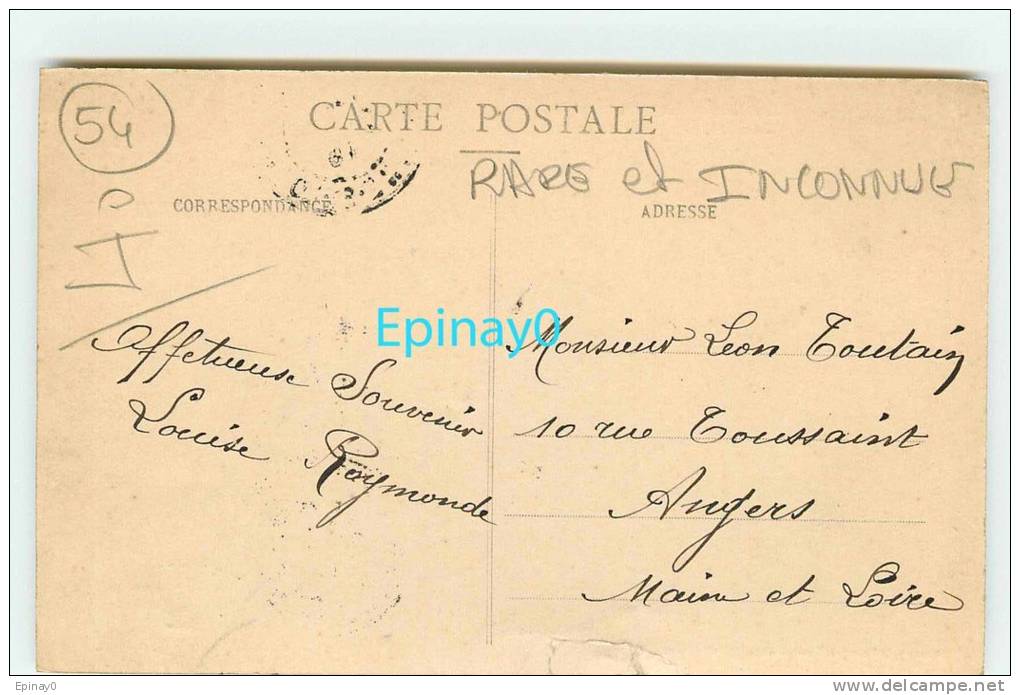 54
CARTE POSTALE
RARE et INCONNUE
CORRESPONDANCE
ADRESSE
Epinay0
Affetueuse Souvenir
Louise Raymonde
Monsieur Leon Toutain
10 rue Toussaint
Angers
Maine et Loire
Epinay0
www.delcampe.net